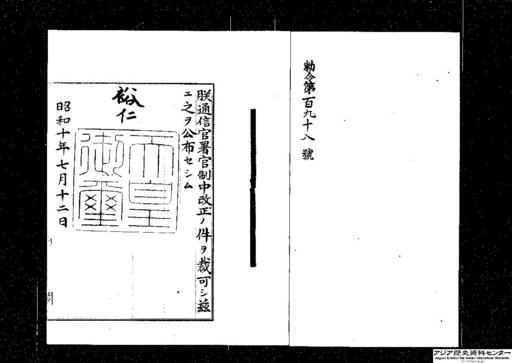 勅令第百九十八號
朕通信官署官制中改正ノ件ヲ裁可シ茲
ニ之ヲ公布セシム
裕仁
天皇
御璽
昭和十年七月十二日
アジア歴史資料センター
Japan Center for Asian Historical Records